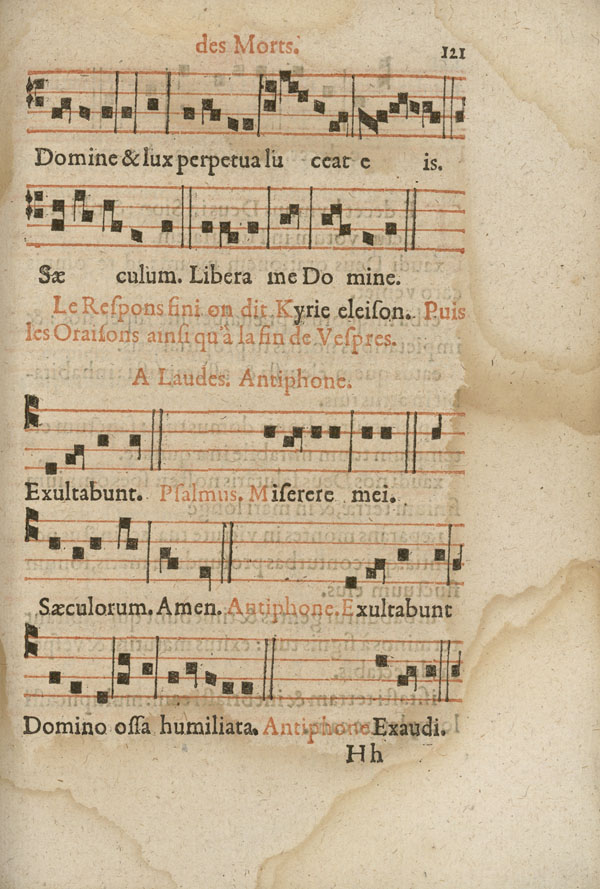 des Morts. 121
Domine & lux perpetua lu ceat e is.
Sæ culum. Libera me Do mine.
Le Respons fini on dit Kyrie eleiſon. Puis
les Oraiſons ainſi qu'à la fin de Veſpres.
A Laudes. Antiphone.
Exultabunt. Pſalmus. Miſerere mei.
Sæculorum. Amen. Antiphone. Exultabunt
Domino oſſa humiliata. Antiphone Exaudi.
Hh